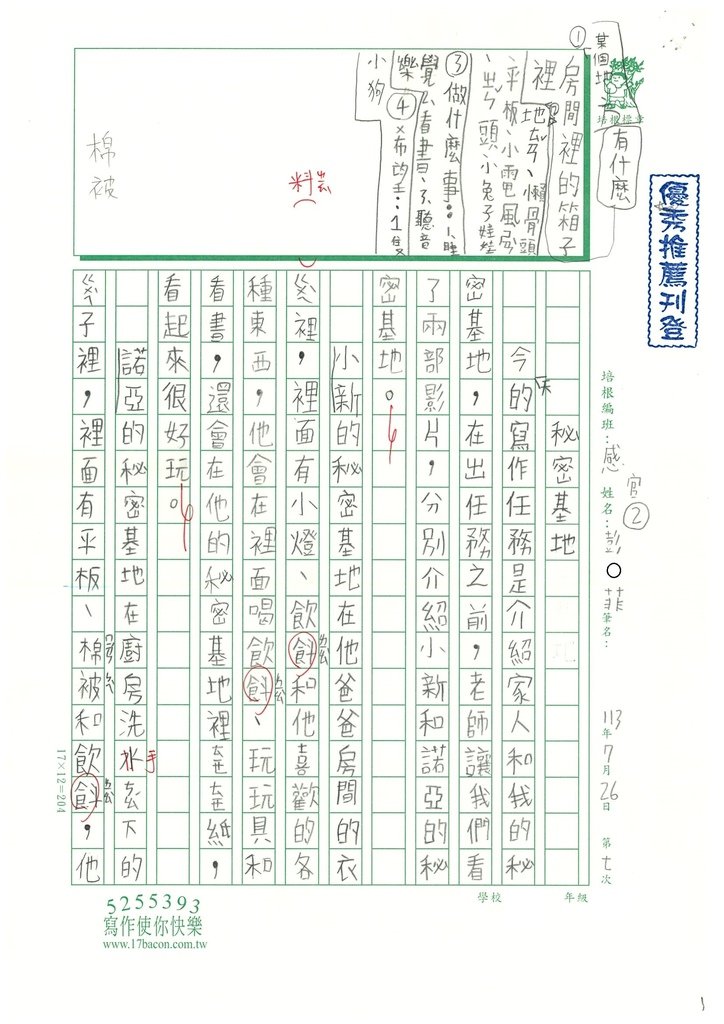 ①
某個地
有什麼
房間裡的箱子
裡
地ㄊㄢˇ、懶骨頭
平板、小電風扇
、ㄓㄣˇ頭、小兔子娃娃
③做什麼事：1、睡
覺2、看書、3、聽音
樂
④ㄨ希望ㄓㄨ：1隻
小狗
料ㄌㄧㄠˋ
棉被
培根標章
優秀推薦刊登
培根編班：感官② 姓名：彭○菲 筆名：
113年7月26日 第七次
祕密基地
今天的寫作任務是介紹家人和我的祕
密基地，在出任務之前，老師讓我們看
了兩部影片，分別介紹小新和諾亞的祕
密基地。
小新的祕密基地在他爸爸房間的衣
ㄍㄨㄟˋ裡，裡面有小燈、飲料和他喜歡的各
種東西，他會在裡面喝飲料、玩玩具和
看書，還會在他的祕密基地裡ㄓㄜˊㄓㄜˇ紙，
看起來很好玩。
諾亞的祕密基地在廚房洗水手ㄊㄞˊ下的
ㄍㄨㄟˋ子裡，裡面有平板、棉被和飲料，他
17×12=204
學校 年級
5255393
寫作使你快樂
www.17bacon.com.tw
1